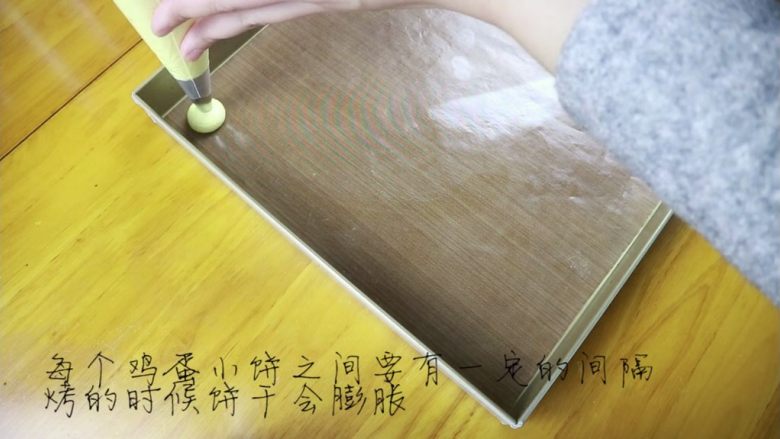 每个鸡蛋小饼之间要有一定的间隔
烤的时候饼干会膨胀